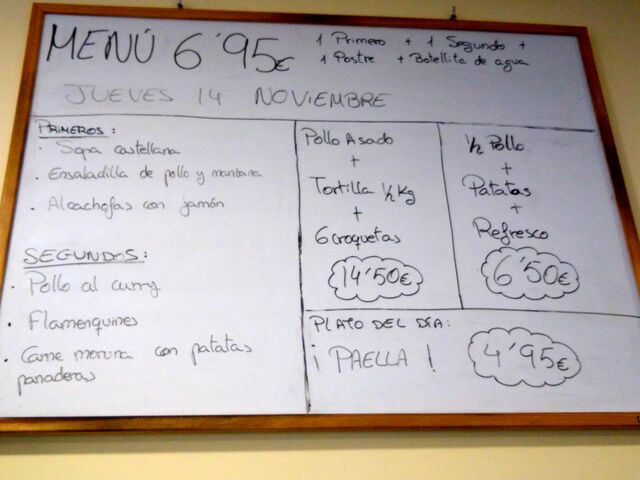 MENÚ 6'95€
1 Primero + 1 Segundo +
1 Postre + Botellita de agua
JUEVES 14 NOVIEMBRE
PRIMEROS:
· Sopa castellana
· Ensaladilla de pollo y manzana
· Alcachofas con jamón
SEGUNDOS:
· Pollo al curry
· Flamenquines
· Carne moruna con patatas
panaderas
Pollo Asado
+
Tortilla 1/2 Kg
+
6 croquetas
14'50€
1/2 Pollo
+
Patatas
+
Refresco
6'50€
PLATO DEL DÍA:
¡PAELLA!
4'95€